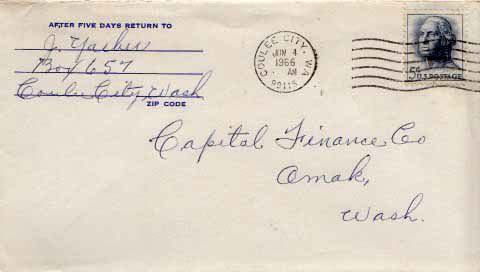 AFTER FIVE DAYS RETURN TO
J.
Box 657
Coulee City, Wash
ZIP CODE
COULEE CITY, WA
JUN 4
1966
AM
99115
5¢ U.S. POSTAGE
Capital Finance Co
Omak,
Wash.